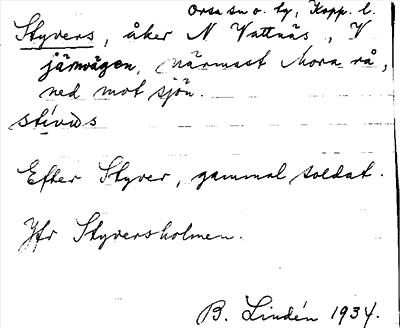 Orsa sn o. tg, Kopp. l.
Styvers, åker N Vattnäs, V
järnvägen, närmast Mora rå,
ned mot sjön.
stívas
Efter Styver, gammal soldat.
Jfr Styversholmen.
B. Lindén 1934.